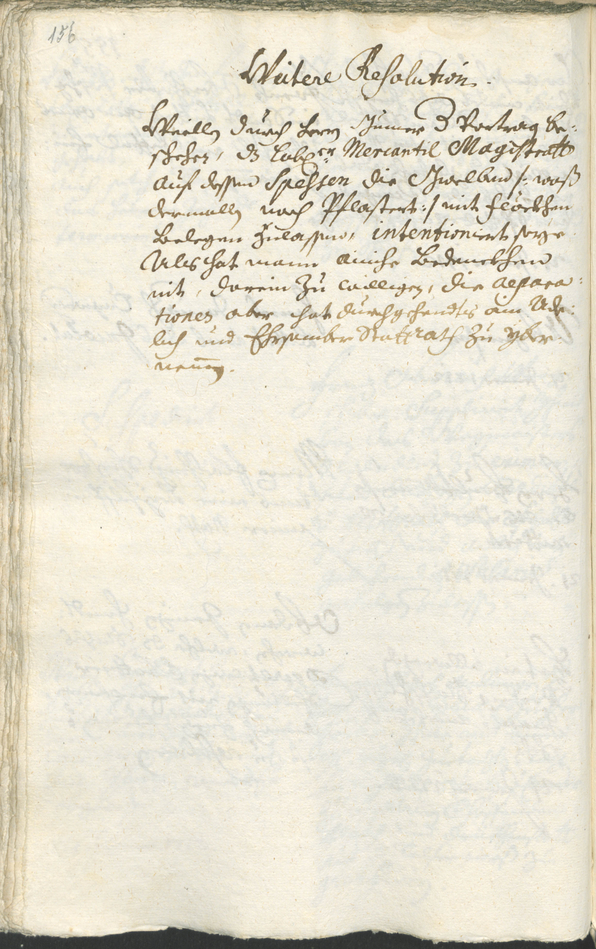 156
Weitere Resolution.
Weillen durch Herrn Vortrag be-
schehen, dz Lob: Mercantil Magistratt
auf dessen Spehsen die Gwelber /: waß
dermallen noch Pflastert :/ mit
Belegen Zulassen, intentioniert seye
Alß hat mann ainiche Bedenckhen
nit, darein Zu willigen, die Repara-
tionen aber hat durchgehendts ain Ade-
lich und Ehrsamber Stattrath Zu yber-
nemmen.